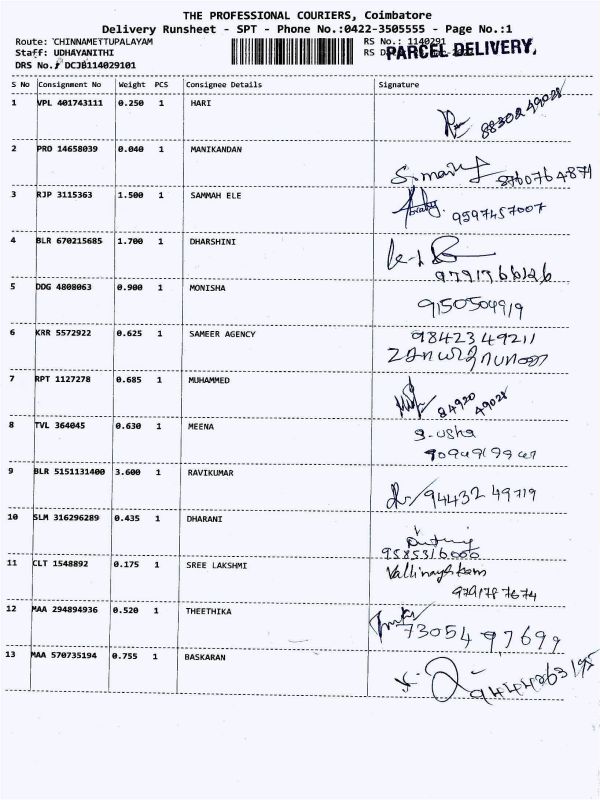 THE PROFESSIONAL COURIERS, Coimbatore
Delivery Runsheet - SPT - Phone No.:0422-3505555 - Page No.:1
Route: CHINNAMETTUPALAYAM RS No.: 1140291
Staff: UDHAYANITHI RS D PARCEL DELIVERY.
DRS No.: DCJB114029101
S No Consignment No Weight PCS Consignee Details Signature
1 VPL 401743111 0.250 1 HARI 88302 49028
2 PRO 14658039 0.040 1 MANIKANDAN 8760764871
3 RJP 3115363 1.500 1 SAMMAH ELE 9597457007
4 BLR 670215685 1.700 1 DHARSHINI
9791766126
5 DDG 4808063 0.900 1 MONISHA 9150504919
6 KRR 5572922 0.625 1 SAMEER AGENCY 9842349211
7 RPT 1127278 0.685 1 MUHAMMED 84920 49028
8 TVL 364045 0.630 1 MEENA g-usha
9 BLR 5151131400 3.600 1 RAVIKUMAR 94432 49719
10 SLM 316296289 0.435 1 DHARANI
9585316006
11 CLT 1548892 0.175 1 SREE LAKSHMI Vallinayakam
9791787674
12 MAA 294894936 0.520 1 THEETHIKA 73054 97699
13 MAA 570735194 0.755 1 BASKARAN